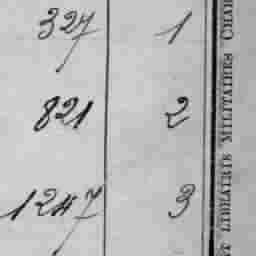 327 1
821 2
1247 3
ET LIBRAIRIE MILITAIRES CHAR